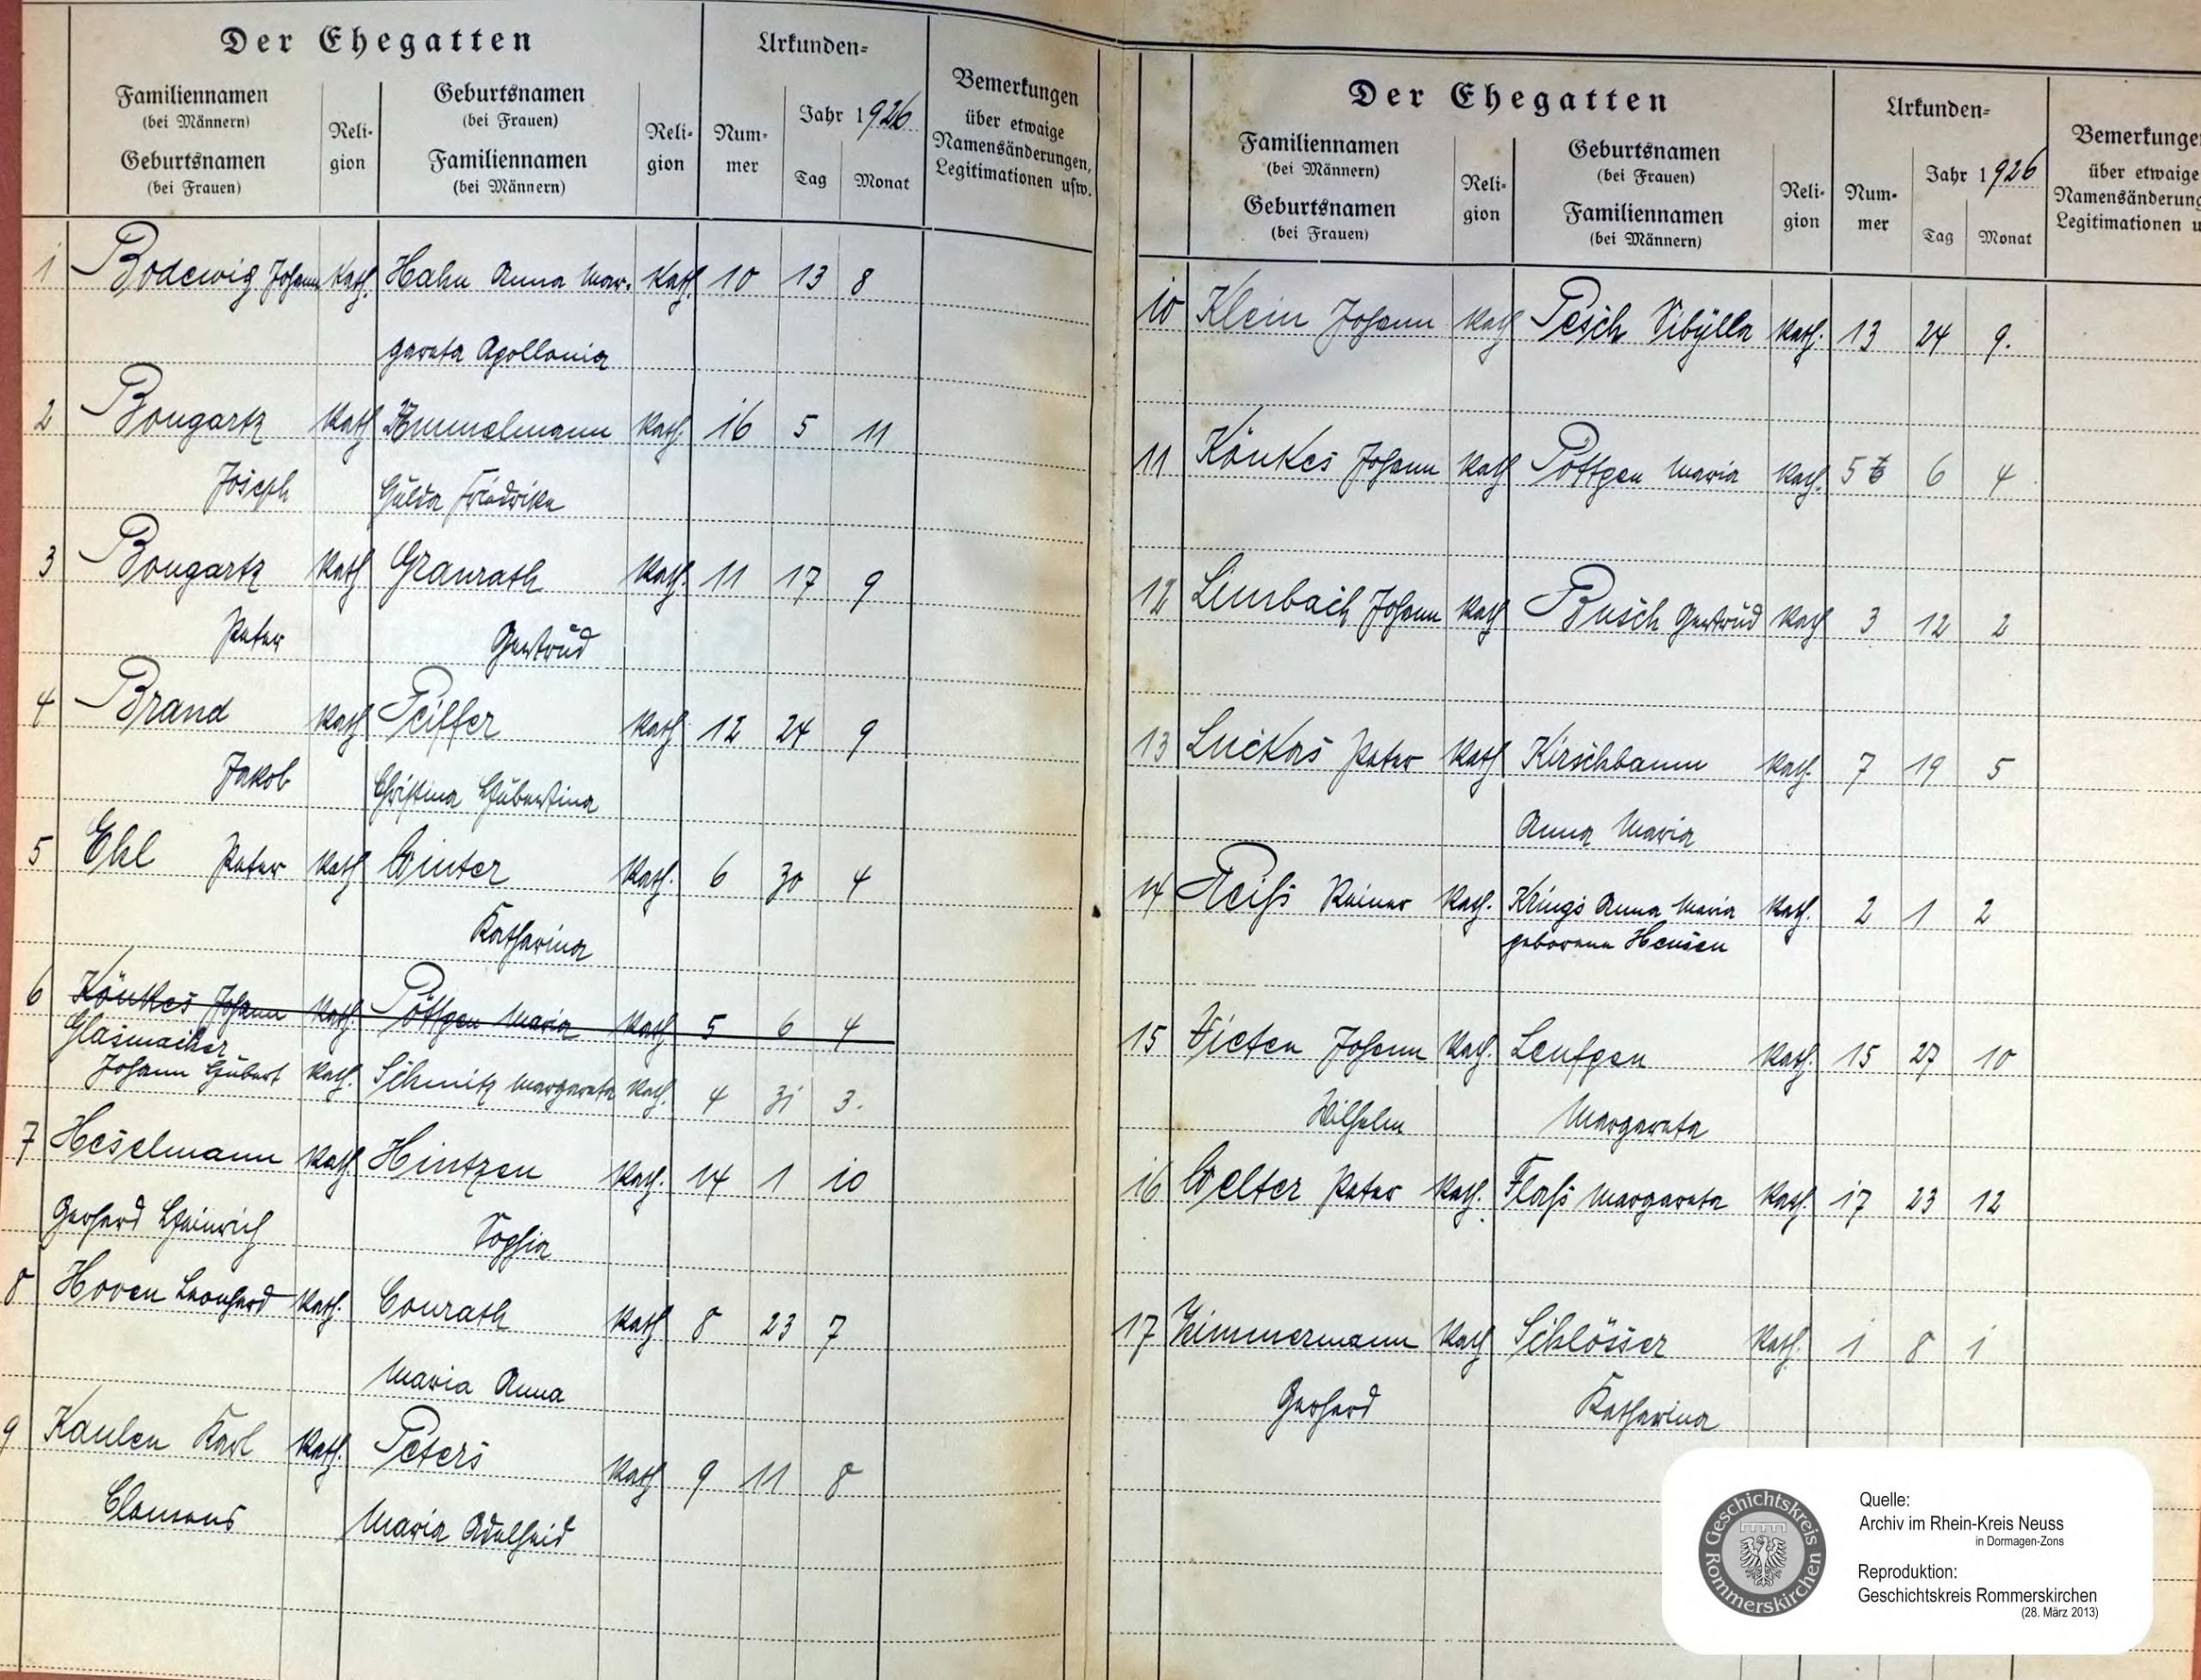 Der Ehegatten
Urkunden=
Familiennamen
(bei Männern)
Geburtsnamen
(bei Frauen)
Reli-
gion
Geburtsnamen
(bei Frauen)
Familiennamen
(bei Männern)
Reli-
gion
Num-
mer
Jahr 1926
Tag
Monat
Bemerkungen
über etwaige
Namensänderungen,
Legitimationen usw.
1 Bodewig Johann Kath. Hahn Anna Mar- Kath. 10 13 8
gareta Apollonia
2 Bongartz Kath Kath. 16 5 11
Joseph
3 Bongartz Kath Granrath Kath. 11 17 9
Peter Gertrud
4 Brand Kath Peiffer Kath 12 24 9
Jakob Christina Hubertina
5 Ehl Peter Kath Winter Kath. 6 30 4
Katharina
6 Könkes Johann Kath. Pöttgen Maria Kath 5 6 4
Glasmacher
Johann Hubert Kath. Schmitz Margareta Kath. 4 31 3.
7 Heselmann Kath Hintzen Kath. 14 1 10
Gerhard Heinrich Sophia
8 Hoven Leonhard Kath. Conrath Kath 8 23 7
Maria Anna
9 Kaulen Karl Kath. Peters Kath 9 11 8
Clemens Maria Adelheid
Der Ehegatten
Urkunden=
Familiennamen
(bei Männern)
Geburtsnamen
(bei Frauen)
Reli-
gion
Geburtsnamen
(bei Frauen)
Familiennamen
(bei Männern)
Reli-
gion
Num-
mer
Jahr 1926
Tag
Monat
Bemerkunge
über etwaige
Namensänderung
Legitimationen u
10 Klein Johann Kath Pesch Sibÿlla Kath. 13 24 9.
11 Könkes Johann Kath Pöttgen Maria Kath. 5 6 4
12 Johann Kath Busch Gertrud Kath 3 12 2
13 Luckas Peter Kath Kirschbaum Kath. 7 19 5
Anna Maria
14 Reiß Reiner Kath. Krings Anna Maria Kath. 2 1 2
geborene Hensen
15 Vieten Johann Kath. Leufgen Kath. 15 27 10
Wilhelm Margareta
16 Welter Peter Kath. Flaß Margareta Kath. 17 23 12
17 Zimmermann Kath Schlösser Kath. 1 8 1
Gerhard Katharina
Geschichtskreis Rommerskirchen
Quelle:
Archiv im Rhein-Kreis Neuss
in Dormagen-Zons
Reproduktion:
Geschichtskreis Rommerskirchen
(28. März 2013)